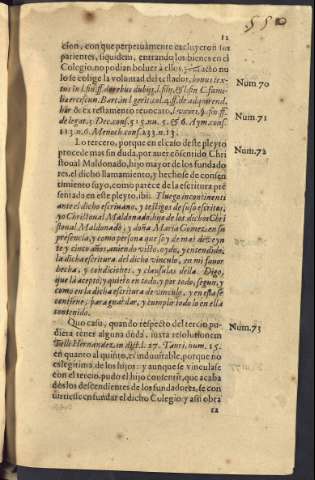 12
cion, con que perpetuamente excluyeron sus
parientes, siquidem, entrando los bienes en el
Colegio, no podian boluer à ellos, y del acto nu
lo se colige la voluntad del testador, bonus tex-
Num 70
hær & ex testamento reuocato, l. cum
Num 71
de legat. 3. Dec. cons. 515. nu. 5. & 6. Aym. cons.
113. n. 6. Menoch. cons. 233. n. 13.
Lo tercero, porque en el caso de este pleyto
Num. 72
procede mas sin duda, por auer cõsentido Chris
toual Maldonado, hijo mayor de los fundado
res, el dicho llamamiento, y hechose de consen
timiento suyo, como parece de la escritura pre
sentada en este pleyto, ibi: Y luego incontinenti
ante el dicho escriuano, y testigos de suso escritos,
yo Christoual Maldonado, hijo de los dichos Chri
stoual Maldonado, y doña Maria Gomez, en su
presencia, y como persona que soy de mas de veyn
te y cinco años, auiendo visto, oydo, y entendido,
la dicha escritura del dicho vinculo, en mi fauor
hecha, y condiciones, y clausulas della. Digo,
que la acepto, y quiero en todo, y por todo, segun, y
como en la dicha escritura de vinculo, y en esta se
contiene, para guardar, y cumplir todo lo en ella
contenido.
Quo casu, quando respecto del tercio pu-
Num. 73
diera tener alguna duda, iuxta resolutionem
Tellii Hernandez, in dict. l. 27. Tauri, num. 15.
en quanto al quinto, es indubitable, porque no
es legitima de los hijos: y aunque se vinculasse
con el tercio, pudo el hijo consentir, que acaba
dos los descendientes de los fundadores, se con
uirtiesse en fundar el dicho Colegio: y assi obra
la